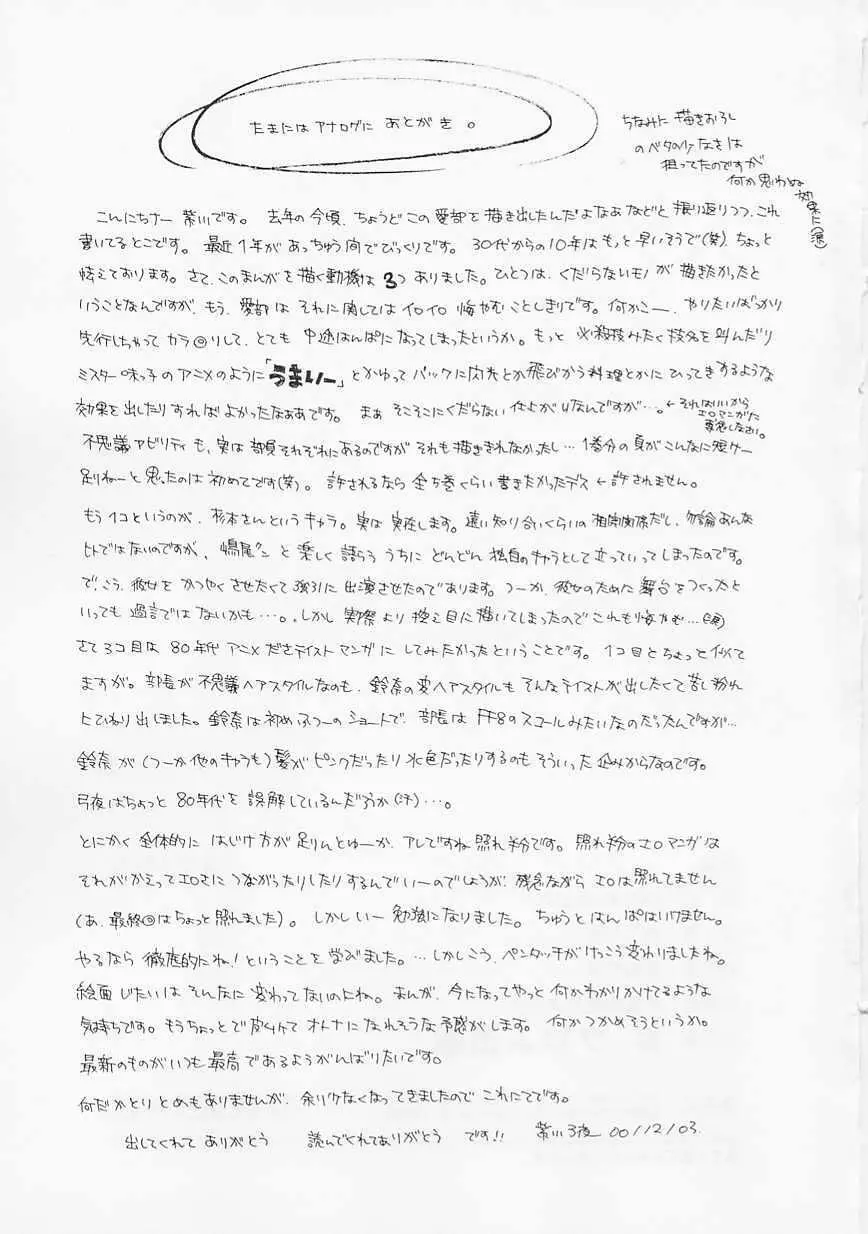 たまにはアナログに あとがき。
ちなみに 描きおろし
のベタのりけなさは
狙ってたのですが
何か思わぬ
効果に(涙)
こんにちナー 紫川です。 去年の今頃、ちょうどこの愛部を描き出したんだよなあなどと 振り返りつつ、これ
書いてるとこです。 最近1年があっちゅう間でびっくりです。 30代からの10年はもっと早いそうで(笑)、ちょっと
怯えております。さて、このまんがを描く動機は 3つ ありました。ひとつは、くだらないモノが描きたかったと
いうことなんですが、もう、愛部は それに関してはイロイロ 悔やむことしきりです。何かこー、やりたいばっかり
先行しちゃって カラ回りして、とても 中途はんぱになってしまったというか。もっと 必殺技みたく技名を叫んだり
ミスター味っ子のアニメのように「うまいー」とかゆって バックに肉片とか飛びかう料理とかにひってきするような
効果を出したりすればよかったなぁあです。 まぁ そこそこにくだらない仕上がりなんですが…。←それはいいから
エロマンガだ
妄想しなさい。
不思議アビリティも、実は 部員それぞれにあるのですが それも描ききれなかったし… 1巻分の頁がこんなに短けー
足りねーと 思ったのは初めてです(笑)。 許されるなら 全5巻くらい書きたかったデス ← 許されません。
もう1コというのが、杉本さんというキャラ。実は 実在します。遠い知り合いくらいの相関関係だし、勿論あんな
ヒトではないのですが、 嶋尾クンと楽しく 語らううちに どんどん 独自のキャラとして立っていってしまったのです。
で、こう、彼女を かつやくさせたくて 強引に 出演させたのであります。つーか、彼女のために 舞台をつくったと
いっても 過言ではないかも…。しかし 実際より 控え目に描いてしまったので これも悔やむ…(涙)
さて3コ目は 80年代アニメださテイストマンガに してみたかったということです。 1コ目とちょっと似て
ますが。部長が不思議ヘアスタイルなのも、鈴奈の変ヘアスタイルも そんなテイストが出したくて苦し紛れ
にひねり出しました。鈴奈は初めふつーのショートで、部長は FF8のスコールみたいなのだったんですが…
鈴奈が(つーか他のキャラも)髪がピンクだったり 水色だったりするのもそういった 企みからなのです。
弓夜はちょっと 80年代を 誤解しているんだろうか(汗)…。
とにかく 全体的に はじけ方が 足りんとゆーか、アレですね 照れ半分です。 照れ半分のエロマンガは
それがかえってエロさに つながったりしたりするんでいーのでしょうが、残念ながら エロは照れてません
(あ、最終回はちょっと照れました)。 しかし いー 勉強になりました。ちゅうとはんぱはいけません。
やるなら 徹底的にね!ということを 学びました。…しかしこう、ペンタッチがけっこう変わりましたね。
絵画 じたいは そんなに 変わってないのにね。まんが、今になってやっと 何かわかりかけてるような
気持ちです。もうちょっとで皮むけて オトナに なれそうな 予感がします。 何かつかめそうというか。
最新のものがいつも 最高であるようがんばりたいです。
何だかとりとめもありませんが、余りりなくなってきましたので これにてです。
出してくれて ありがとう 読んでくれてありがとう です!! 紫川弓夜 00/12/03.